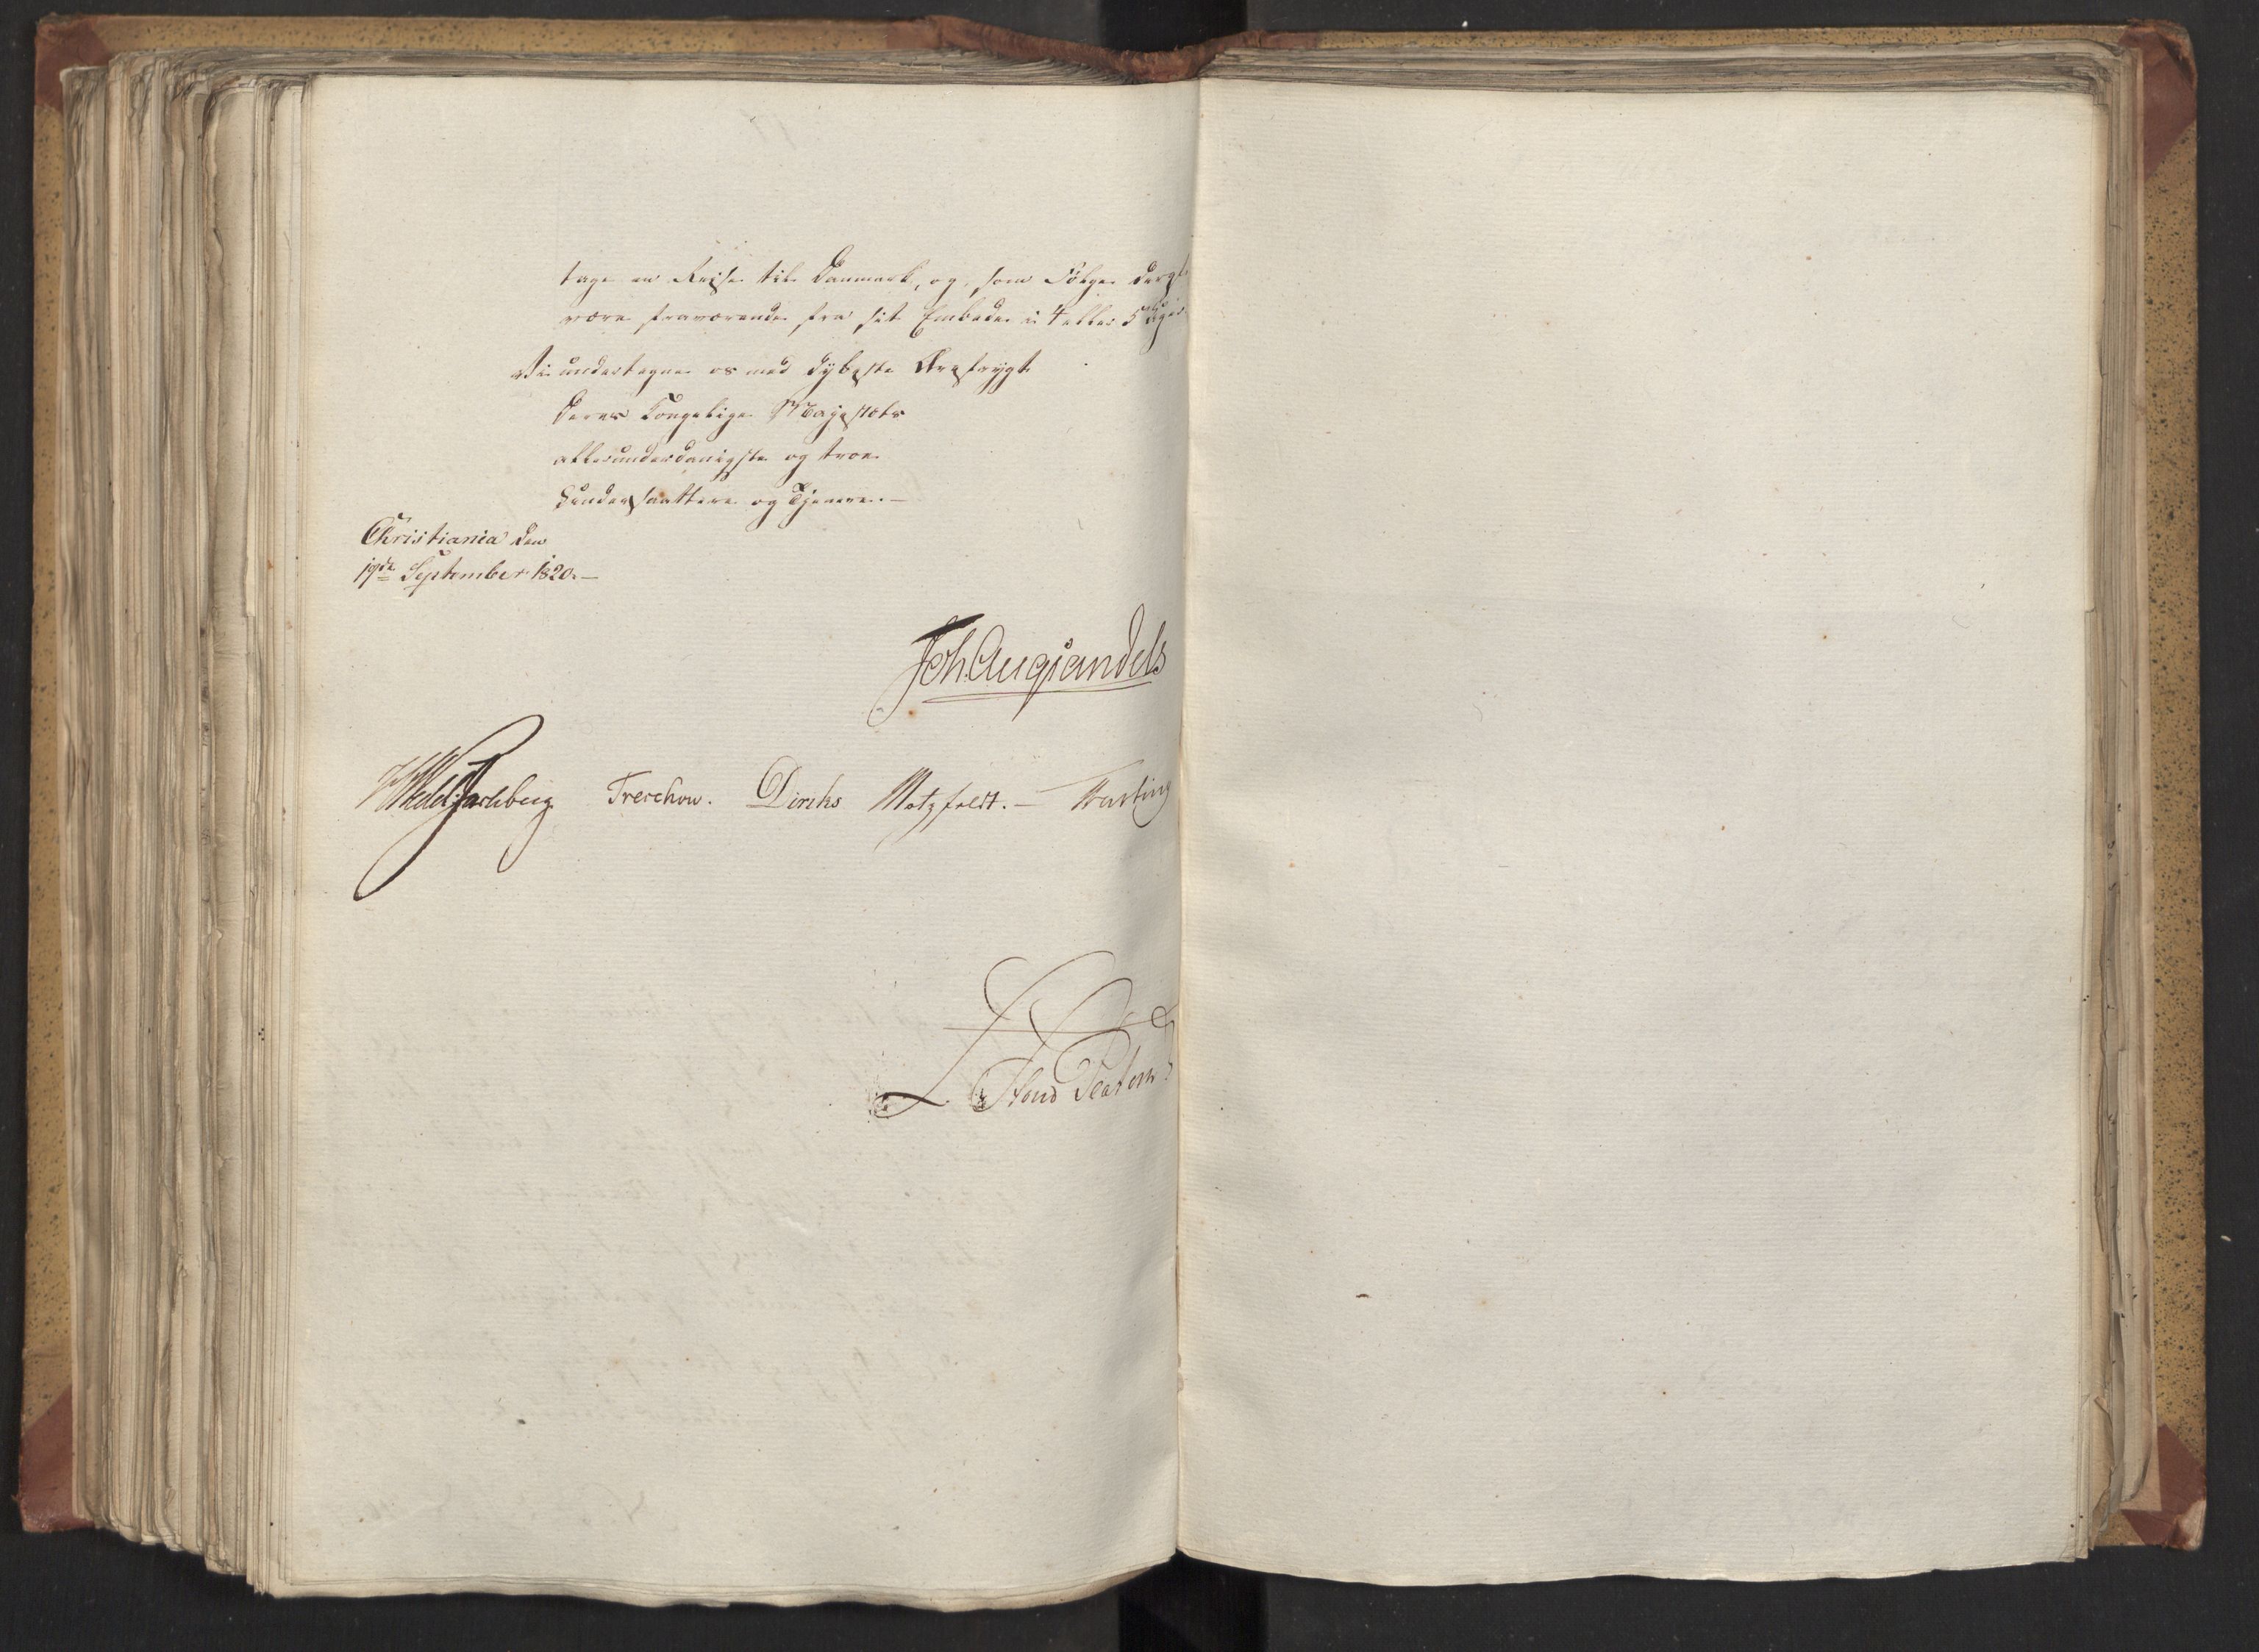 tage en Reise til Danmark, og, som Følge deraf
være fraværende fra sit Embede i 4 eller 5 Uger.
Vi undertegne os med dybeste Ærefrygt
Deres Kongelige Majestæts
allerunderdanigste og troe
Undersaattere og Tjenere.—
Christiania den
19de September 1820.—
Joh. Aug. Sandels
Wedel Jarlsberg Treschow. Diriks Motzfeldt.—